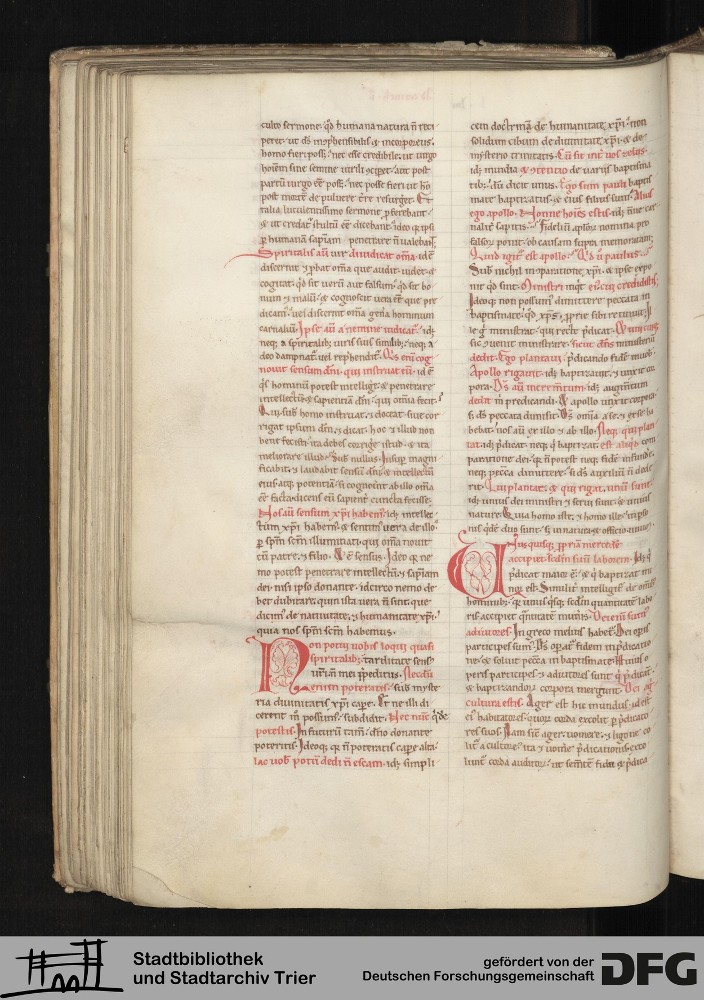 culto sermone. qd humana natura n reci
peret ut ds inphensibilis & incorporeus.
homo fieri poss. nec esse credibile. ut uirgo
sine semine uirili & post
partu uirgo ee poss. nec posse fieri ut ho
post morte de puluere tre resurget. Et
talia luculentissimo sermone pferebant.
& ut stultu ee dicebant. ideo q ipsi
p humana sapiam penetrare n ualebant.
Spiritalis au uir diiudicat oma. ide
discernit & pbat oma que audit. uidet. &
cogitat. qd sit ueru aut falsum. qd sit bo
num & malu. & cognoscit uera ee que pre
dicam. uel discernit oma gena hominum
carnaliu. Ipse au a nemine iudicat. ide
neq a spiritalib. uiris suis similib. neq a
deo dampnat. uel rephendit. Qs eni cog
nouit sensum dni. qui instruat eu. id e
qs hominu potest intellige & penetrare
intellectu & sapientia dni. qui oma fecit.
Quis homo instruat. & doceat. siue cor
rigat ipsum dnm. & dicat. hoc & illud non
bene fecisti. ita debes corrige istud. & ita
meliorare illud. Sub. nullus. Insup magni
ficabit. & laudabit sensu dni. & intellectu
eius atq potentia. si cognoscit ab illo oma
ee facta. dicens eu sapient cuncta fecisse.
Nos au sensum xpi habem. ide intellec
tum xpi habem. & sentim uera de illo.
p spm scm illuminati. qui oma nouit
cu patre. & filio. Ideo q ne
mo potest penetrare intellectu. & sapiam
dei. nisi ipso donante. idcirco nemo de
bet dubitare. quin ista uera n sint. que
dicim de natiuitate. & humanitate xpi.
quia nos spm scm habemus.
Non potui uobis loqui quasi
spiritalib. tarditate sens
urm mei ipeditus. Necdu
enim poteratis. sub. myste
ria diuinitatis xpi cape. Et ne illi di
cerent m possum. subdidit. Nec nunc qde
potestis. In futuru tam. dno donante
poteritis. Ideoq. q n poteratis cape alta.
lac uob potu dedi n escam. ide simpli
cem doctrina de humanitate xpi. non
solidum cibum de diuinitate xpi. & de
misterio trinitatis. Cu sit int uos zelus.
ide inuidia & contentio de uariis baptisma
tib. tu dicit unus. Ego sum pauli baptis
mate baptizatus. & eius filius sum. Alius
ego apollo. Nonne hoies estis. ide inne car
nalit sapitis. Fidelium aplos nomina pro
falsos ponit. ob causam supra memoratam.
Quid igit est apollo. Qd u paulus.
Sub. nichil in paratione xpi. & ipse expo
nit qd sint. Ministri inqt ei cui credidistis.
Ideoq. non possunt dimittere peccata in
baptismate. qd xps. pprie sibi retinuit. Il
le g ministrat. qui recte pdicat. Et unicuiq
sic euenit ministrare. sicut dns ministeriu
dedit. Ego plantaui. pdicando fide inuob.
Apollo rigauit. ide baptizauit. & unxit cor
pora. Ds au incrementum. ide augmtum
dedit in predicandi. & apollo unxit corpora.
s. ds peccata dimisit. Ds oma a se. & ex se ha
bebat. nos au ex illo & ab illo. Neq qui plan
tat. ide pdicat. neq. q baptizat. est aliqd. com
paratione dei. q n potest neq. fide infunde.
neq. pecca dimittere. si ds auxiliu n dede
rit. Qui plantat. & qui rigat. unu sunt.
ide unius dei ministri & serui sunt. & unius
nature. Quia homo iste. & homo ille. in pso
nis qde duo sunt. s; in natura & officio unu.
Unusquisq. ppria mercede
accipiet. scdm suu labore. Ide q
pdicat maius e. & q baptizat mi
nus est. Similit intelligit de omib
hominib. q unus qsq. scdm quantitate labo
ris accipiet qntitate muneris. Dei eni sum
adiutores. In greco melius habet. Dei opis
participes sum. Ds opat fidem in pdicatio
ne. & soluit pecca in baptismate. Huius o
peris participes & adiutores sunt q pdicant
& baptizando corpora mergunt. Dei ag
cultura estis. Ager est hic mundus. id est
ei habitatores. quos corda excolit p pdicato
res suos. Nam sic ager. uomere. & ligone co
lit a cultore. ita & uomere pdicationis exco
lunt corda auditoru. ut semte fidei & pdica
Stadtbibliothek
und Stadtarchiv Trier
gefördert von der
Deutschen Forschungsgemeinschaft
DFG